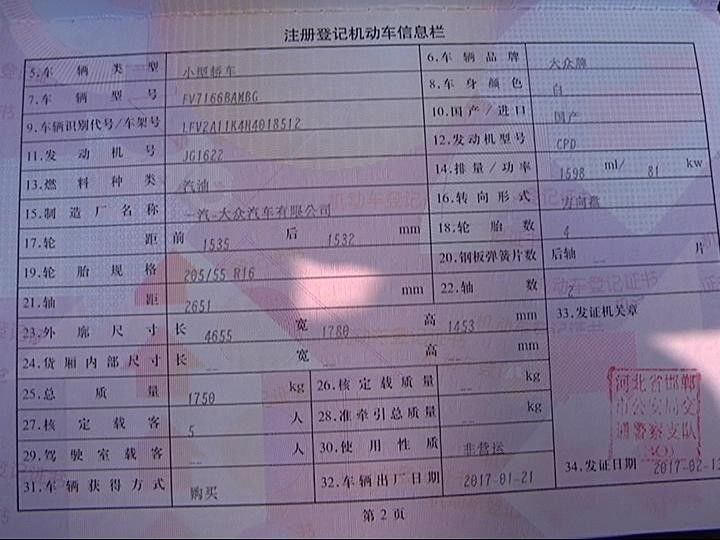 注册登记机动车信息栏
5.车辆类型 小型轿车 6.车辆品牌 大众牌
7.车辆型号 FV7166BAMBG 8.车身颜色 白
9.车辆识别代号/车架号 LFV2A11K4H4018512 10.国产/进口 国产
11.发动机号 JG1622 12.发动机型号 CPD
13.燃料种类 汽油 14.排量/功率 1598 ml/ 81 kw
15.制造厂名称 一汽-大众汽车有限公司 16.转向形式 方向盘
17.轮距 前 1535 后 1532 mm 18.轮胎数 4
19.轮胎规格 205/55 R16 20.钢板弹簧片数 后轴 -- 片
21.轴距 2651 mm 22.轴数 2
23.外廓尺寸 长 4655 宽 1780 高 1453 mm 33.发证机关章
24.货厢内部尺寸 长 -- 宽 -- 高 -- mm
25.总质量 1750 kg 26.核定载质量 -- kg
27.核定载客 5 人 28.准牵引总质量 -- kg
29.驾驶室载客 -- 人 30.使用性质 非营运
河北省邯郸
市公安局交
通警察支队
31.车辆获得方式 购买 32.车辆出厂日期 2017-01-21 34.发证日期 2017-02-13
第2页